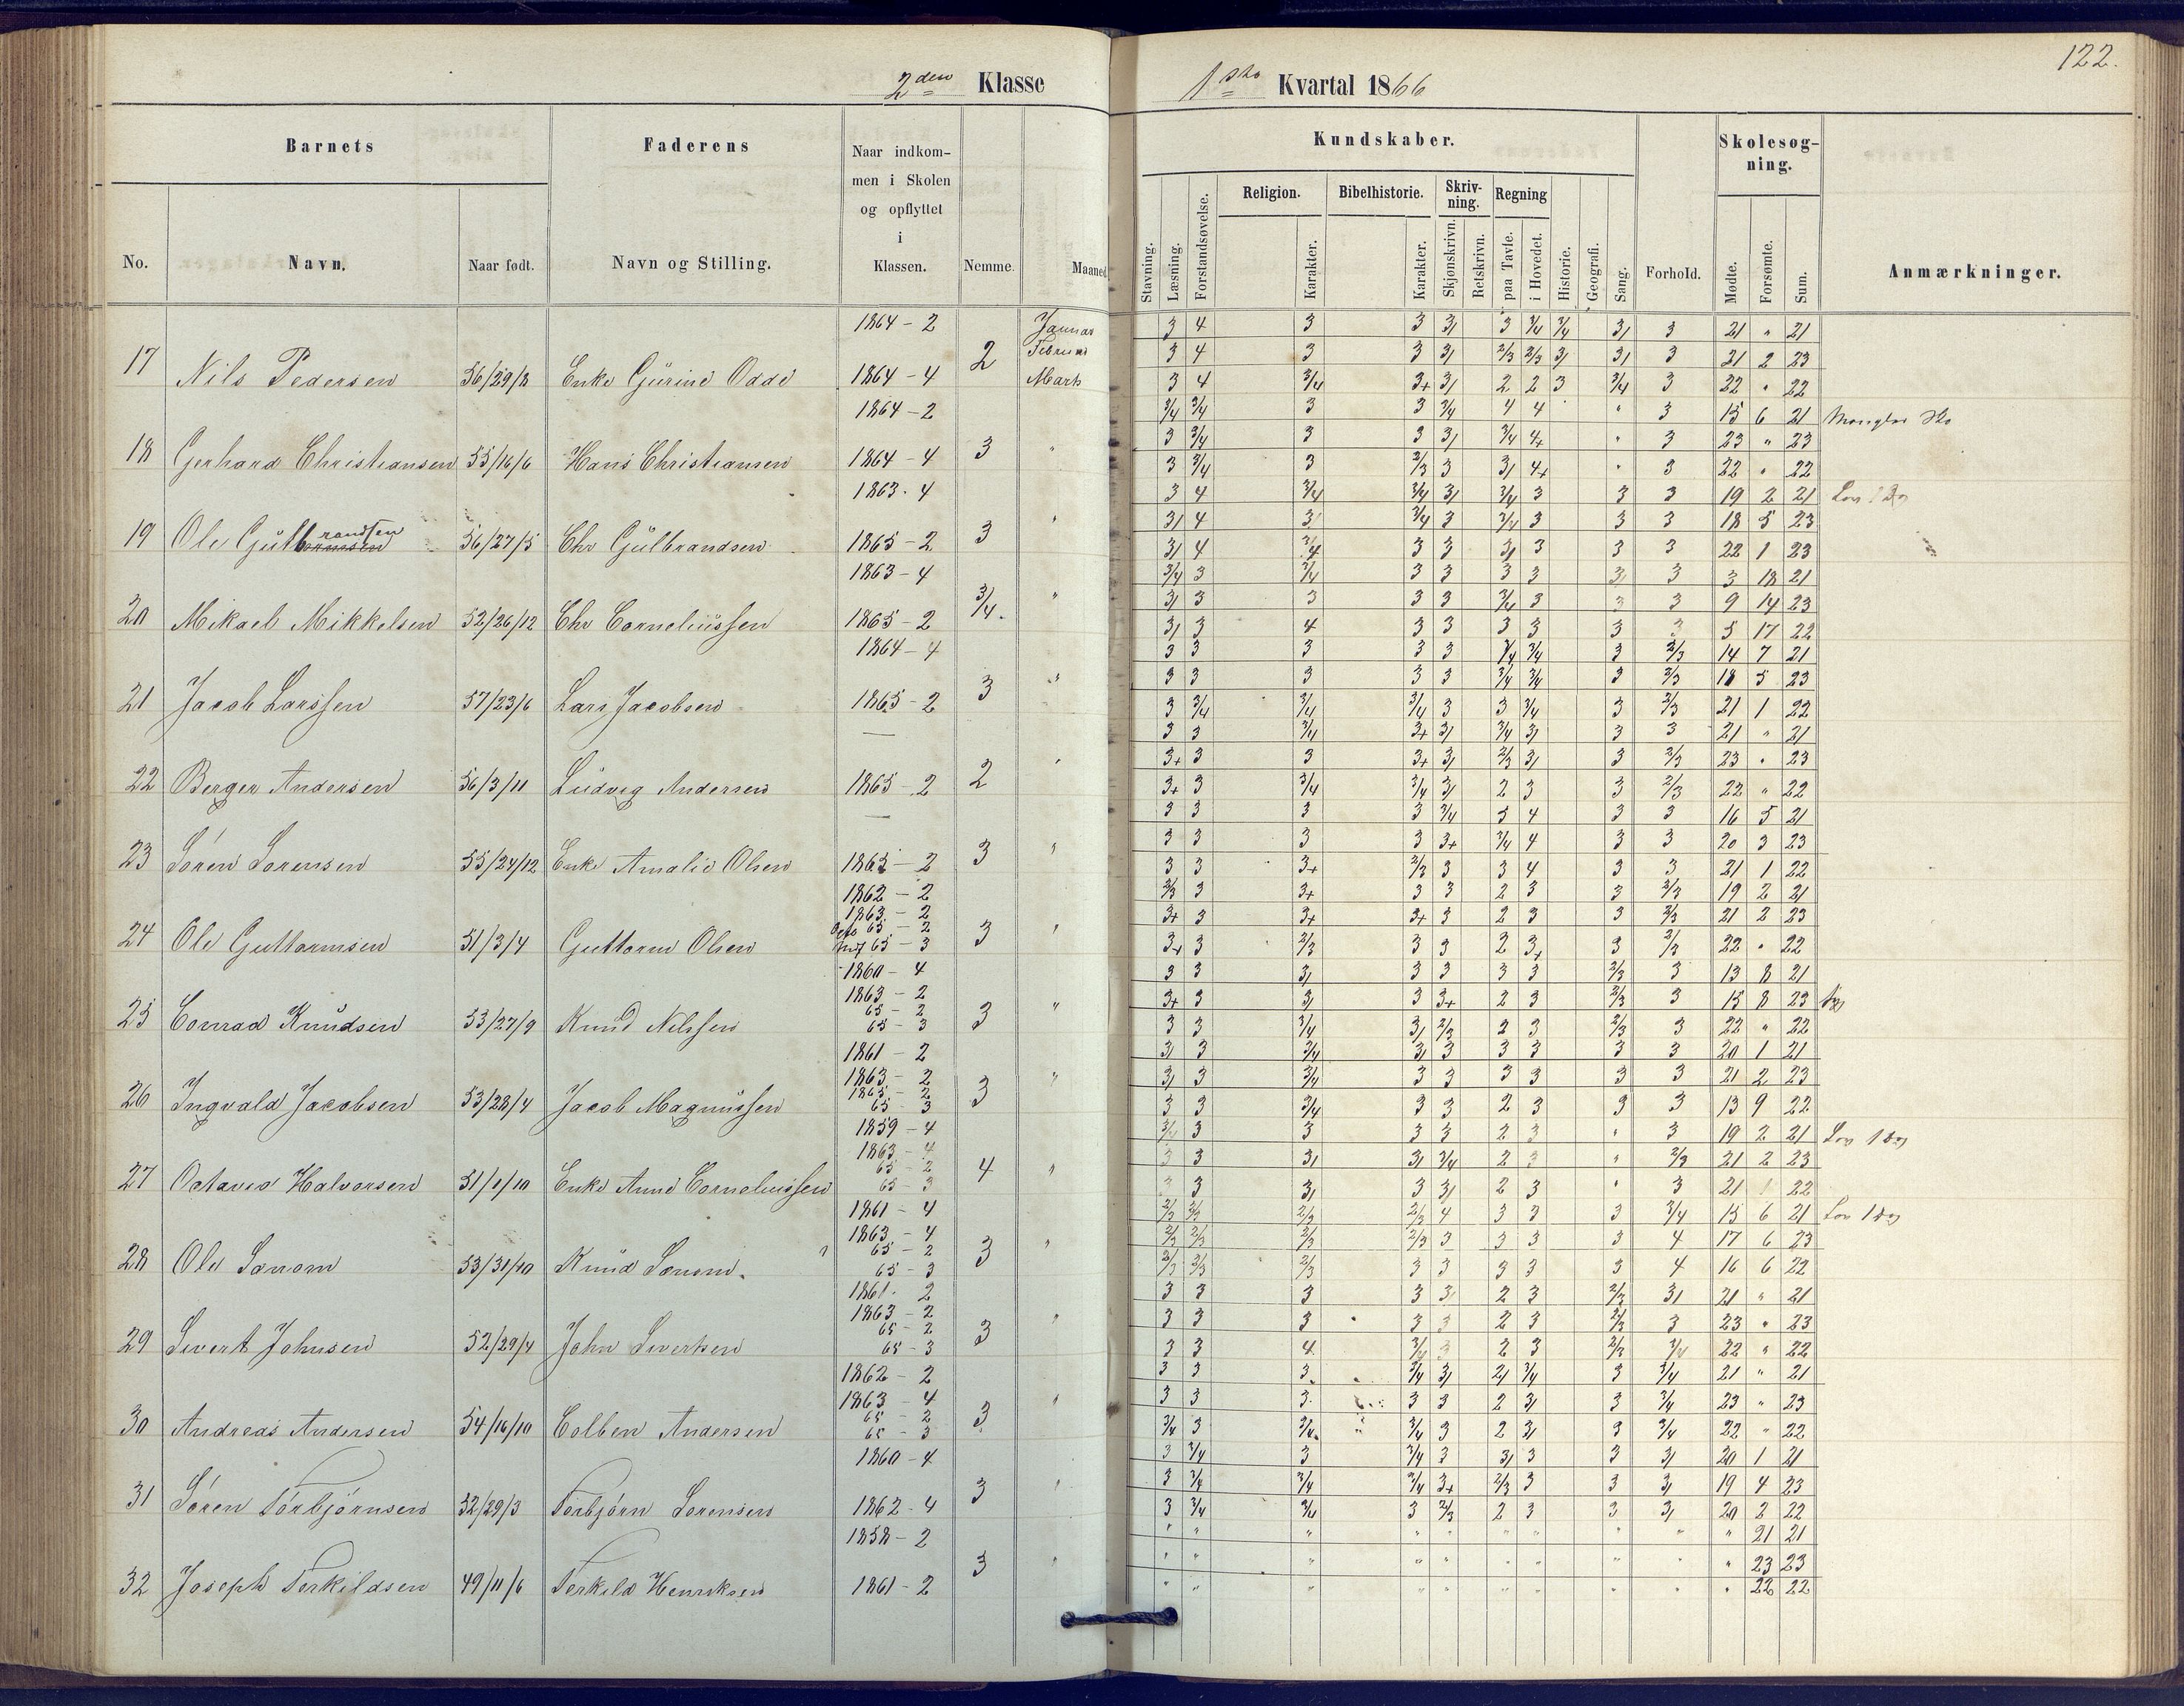 122.
2den Klasse
1ste Kvartal 1866
Barnets
Faderens
Naar indkom-
men i Skolen
og opflyttet
i
Klassen.
Nemme.
Maaned.
No.
Navn.
Naar født.
Navn og Stilling.
Kundskaber.
Stavning.
Læsning.
Forstandsøvelse.
Religion.
Karakter.
Bibelhistorie.
Karakter.
Skriv-
ning.
Skjønskrivn.
Retskrivn.
Regning
paa Tavle.
i Hovedet.
Historie.
Geografi.
Sang.
Forhold.
Skolesøg-
ning.
Mødte.
Forsømte.
Sum.
Anmærkninger.
17 Nils Pedersen 56/29/8 Enke Gurine Odde 1864 - 2 1864 - 4 2 Januar Februar Marts
3 4 3 3 3/ 3 3/4 3/4 3/ 3 21 " 21
3 4 3 3 3/ 2/3 2/3 3/ 3/ 3 21 2 23
3 4 3/4 3+ 3/ 2 2 3 3/4 3 22 " 22
18 Gerhard Christiansen 55/16/6 Hans Christiansen 1864 - 2 1864 - 4 3 "
3/4 3/4 3 3 3/4 4 4 " 3 15 6 21
3 3/4 3 3 3/ 3/4 4+ " 3 23 " 23
3 3/4 3 2/3 3 3/ 4+ " 3 22 " 22
19 Ole Gulbrandsen 56/27/5 Chr Gulbrandsen 1863 - 4 1865 - 2 3 "
3 4 3/4 3/4 3/ 3/4 3 3 3 19 2 21
3/ 4 3/ 3/4 3 3/4 3 3 3 18 5 23
3/ 4 3/4 3 3 3/ 3 3 3 22 1 23
20 Mikael Mikkelsen 52/26/12 Chr Corneliussen 1863 - 4 1865 - 2 3/4 "
3/4 3 3/4 3 3 3 3 3/ 3 3 18 21
3/ 3 3 3 3 3/4 3 3 3 9 14 23
3/ 3 4 3 3 3 3 3 3 5 17 22
21 Jacob Larssen 57/23/6 Lars Jacobsen 1864 - 4 1865 - 2 3 "
3 3 3 3 3 3/4 3/4 3 2/3 14 7 21
3 3 3 3 3 3/4 3/4 3 2/3 18 5 23
3 3/4 3/4 3/4 3 3 3/4 3 2/3 21 1 22
22 Berger Andersen 56/3/11 Ludvig Andersen — 1865 - 2 2 "
3 3 3/4 3+ 3/ 3/4 3/ 3 3 21 " 21
3+ 3 3 3+ 3/ 2/3 3/ 3 2/3 23 " 23
3+ 3 3/4 3/4 3/ 2 3 3 2/3 22 " 22
23 Sören Sorensen 55/24/12 Enke Amalie Olsen — 1865 - 2 3 "
3 3 3 3 3/4 3 4 3 3 16 5 21
3 3 3 3 3+ 3/4 4 3 3 20 3 23
3 3 3+ 2/3 3 3 4 3 3 21 1 22
24 Ole Guttormsen 51/3/4 Guttorm Olsen 1862 - 2 1863 - 2 65 - 2 65 - 3 3 "
2/3 3 3+ 3 3 2 3 3 2/3 19 2 21
3+ 3 3+ 3+ 3 2 3 3 2/3 21 2 23
3+ 3 2/3 3 3 2 3+ 3 2/3 22 " 22
25 Conrad Knudsen 53/27/9 Knud Nilssen 1860 - 4 1863 - 2 65 - 2 65 - 3 3 "
3 3 3/ 3 3 3 3 2/3 3 13 8 21
3+ 3 3/ 3 3+ 2 3 2/3 3 15 8 23
3 3 3/4 3/ 2/3 2 3 2/3 3 22 " 22
26 Ingvald Jacobsen 53/28/4 Jacob Magnussen 1861 - 2 1863 - 2 1865 - 2 65 - 3 3 "
3/ 3 3/4 3/ 3 3 3 3 3 20 1 21
3/ 3 3/4 3 3 3 3 3 3 21 2 23
3 3 3/4 3 3 2 3 3 3 13 9 22
27 Octavius Halvorsen 51/1/10 Enke Anne Corneliussen 1859 - 4 1863 - 4 65 - 2 65 - 3 4 "
3/4 3 3 3 3 2 3 " 3 19 2 21
3 3 3/ 3/ 3/4 2 3 " 2/3 21 2 23
3 3 3/ 3 3/ 2 3 " 3 21 1 22
28 Ole Sorrom 53/31/10 Knud Sorrom. 1861 - 4 1863 - 4 65 - 2 65 - 3 3 "
2/3 2/3 2/3 2/3 4 3 3 3 3/4 15 6 21
2/3 2/3 2/3 2/3 3 3 3 3 4 17 6 23
2/3 2/3 2/3 3 3 3 3 3 4 16 6 22
29 Sivert Johnsen 52/29/4 John Sivertsen 1861 - 2 1863 - 2 65 - 2 65 - 3 3 "
3 3 3 3 3/ 2 3 2/3 3/ 21 " 21
3 3 3 3 3 2 3 2/3 3 23 " 23
3 3 4 3/4 3 2 3 2/3 3/4 22 " 22
30 Andreas Andersen 54/16/10 Colben Andersen 1862 - 2 1863 - 4 65 - 2 65 - 3 3 "
3 3 3 3/4 3/ 2/ 3/4 3 3/4 21 " 21
3 3 3 3 3 2 3/ 3 3/4 23 " 23
3/4 3 3/4 3/4 3 2 3/ 3 3/4 22 " 22
31 Sören Torbjörnsen 52/29/3 Torbjörn Sorensen 1860 - 4 1862 - 4 3 "
3 3/4 3 3/4 3 3/ 3 3 3/ 20 1 21
3 3/4 3/4 3/4 3+ 2/3 3 3 3/ 19 4 23
3 3/4 3/4 3 2/3 2 3 3 3/ 20 2 22
32 Joseph Terkildsen 49/11/6 Terkild Henriksen 1858 - 2 1861 - 2 3 "
" " " " " " " " " " 21 21
" " " " " " " " " " 23 23
" " " " " " " " " " 22 22